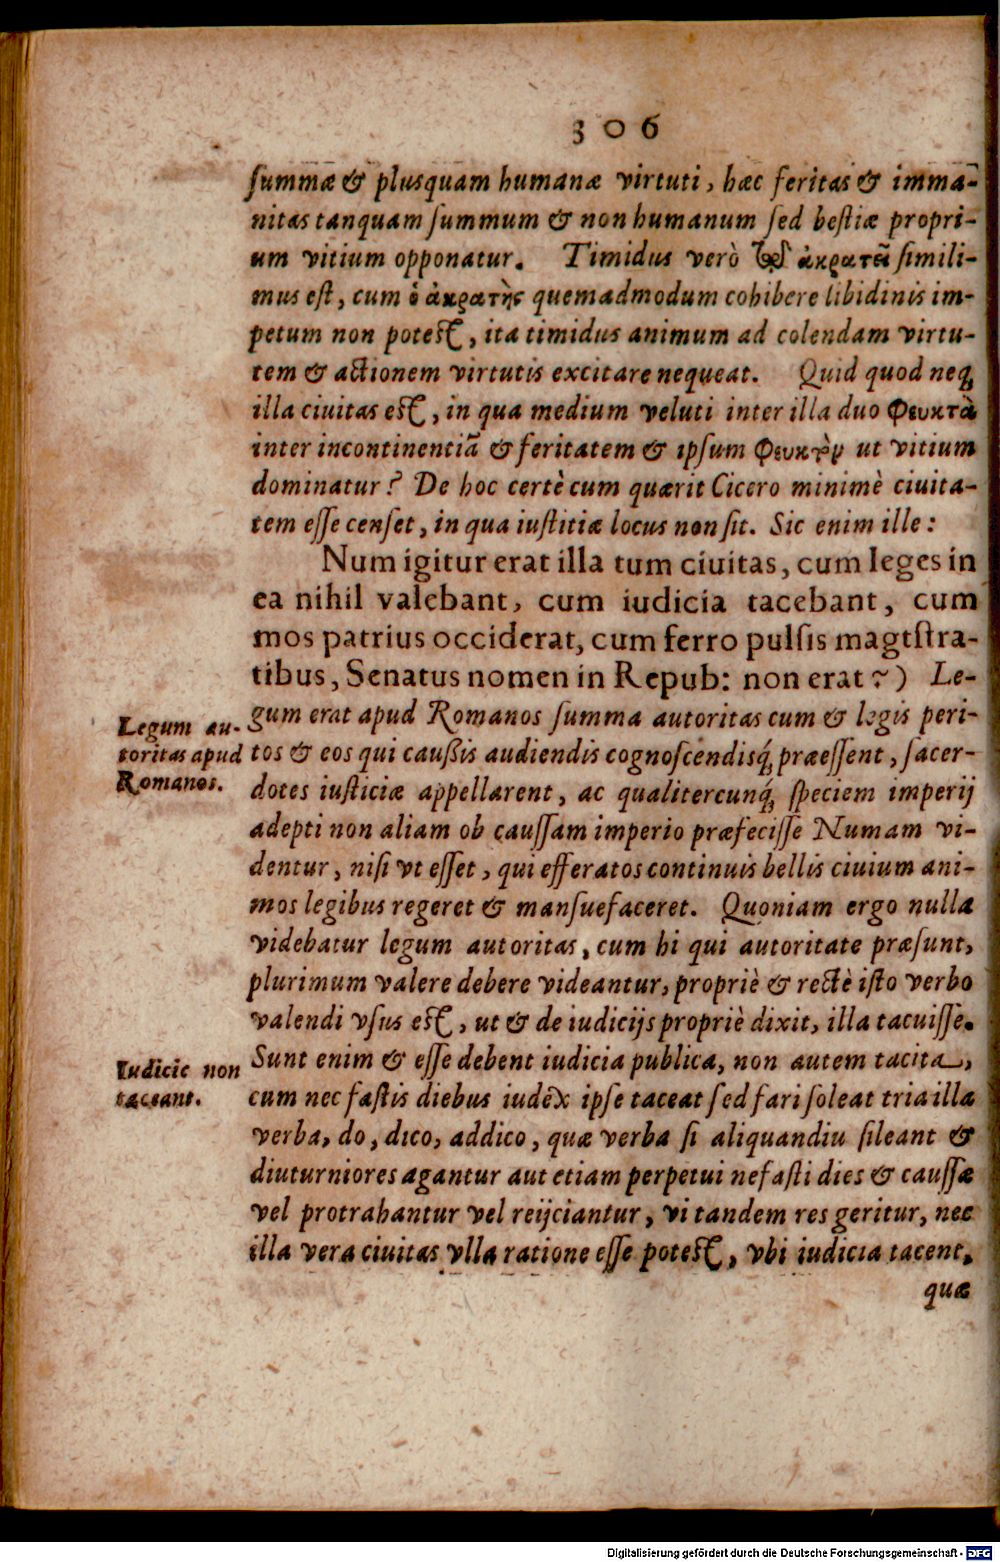 306
ſummæ & pluſquam humanæ virtuti, hæc feritas & imma-
nitas tanquam ſummum & non humanum ſed beſtiæ propri-
um vitium opponatur. Timidus verò τῷ ἀκρατεῖ ſimili-
mus eſt, cum ὁ ἀκρατὴς quemadmodum cohibere libidinis im-
petum non poteſt, ita timidus animum ad colendam virtu-
tem & actionem virtutis excitare nequeat. Quid quod neq;
illa ciuitas eſt, in qua medium veluti inter illa duo φευκτὰ
inter incontinentiã & feritatem & ipſum φευκτὸν ut vitium
dominatur? De hoc certè cum quærit Cicero minimè ciuita-
tem eſſe cenſet, in qua iuſtitiæ locus non ſit. Sic enim ille:
Num igitur erat illa tum ciuitas, cum leges in
ea nihil valebant, cum iudicia tacebant, cum
mos patrius occiderat, cum ferro pulſis magtſtra-
tibus, Senatus nomen in Repub: non erat?) Le-
gum erat apud Romanos ſumma autoritas cum & legis peri-
Legum au-
toritas apud
Romanos.
tos & eos qui cauſsis audiendis cognoſcendisq́; præeſſent, ſacer-
dotes iuſticiæ appellarent, ac qualitercunq́; ſpeciem imperij
adepti non aliam ob cauſſam imperio præfeciſſe Numam vi-
dentur, niſi vt eſſet, qui efferatos continuis bellis ciuium ani-
mos legibus regeret & manſuefaceret. Quoniam ergo nulla
videbatur legum autoritas, cum hi qui autoritate præſunt,
plurimum valere debere videantur, propriè & rectè iſto verbo
valendi vſus eſt, ut & de iudicijs propriè dixit, illa tacuiſſe.
Iudicic non
taceant.
Sunt enim & eſſe debent iudicia publica, non autem tacita,
cum nec faſtis diebus iudex ipſe taceat ſed fari ſoleat tria illa
verba, do, dico, addico, quæ verba ſi aliquandiu ſileant &
diuturniores agantur aut etiam perpetui nefaſti dies & cauſſæ
vel protrahantur vel reijciantur, vi tandem res geritur, nec
illa vera ciuitas vlla ratione eſſe poteſt, vbi iudicia tacent,
quæ
Digitalisierung gefördert durch die Deutsche Forschungsgemeinschaft - DFG